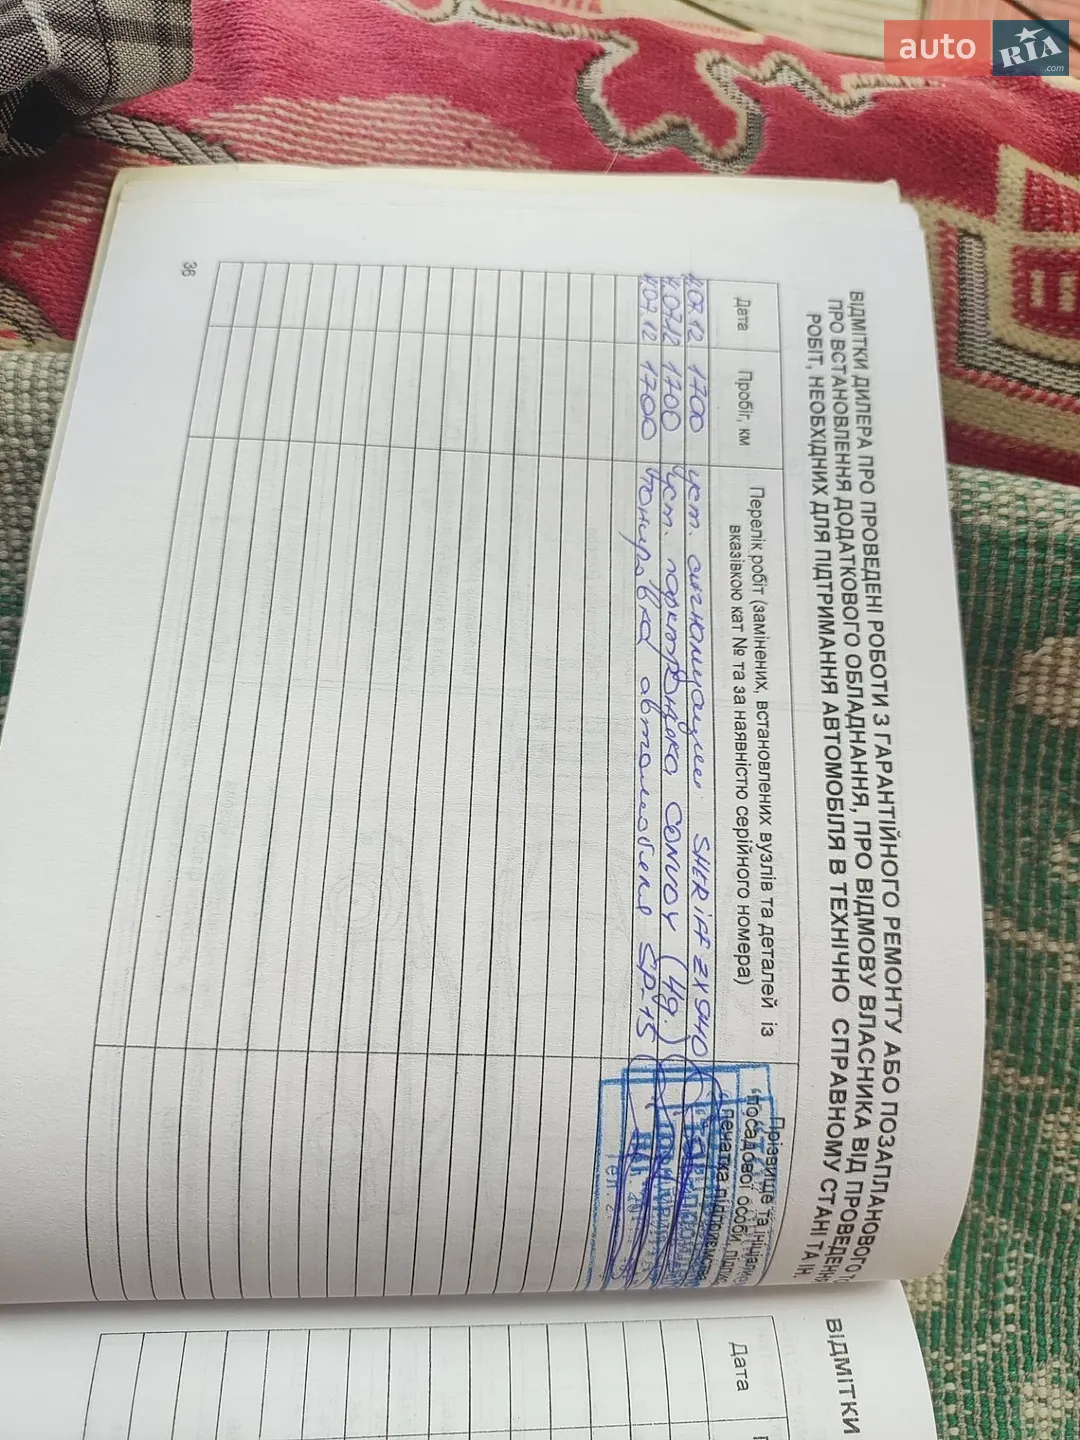 auto RIA.com
ВІДМІТКИ ДИЛЕРА ПРО ПРОВЕДЕНІ РОБОТИ З ГАРАНТІЙНОГО РЕМОНТУ АБО ПОЗАПЛАНОВОГО
ПРО ВСТАНОВЛЕННЯ ДОДАТКОВОГО ОБЛАДНАННЯ, ПРО ВІДМОВУ ВЛАСНИКА ВІД ПРОВЕДЕН
РОБІТ, НЕОБХІДНИХ ДЛЯ ПІДТРИМАННЯ АВТОМОБІЛЯ В ТЕХНІЧНО СПРАВНОМУ СТАНІ ТА ІН.
Дата
Пробіг, км
Перелік робіт (замінених, встановлених вузлів та деталей із
вказівкою кат № та за наявністю серійного номера)
Прізвище та ініціали
посадової особи, підпис
печатка підприємства
07.12 1700 уст. сигнализации SHERIFF ZX 940
07.12 1700 уст. парктроника CONVOY (4д.)
07.12 1700 тонировка автомобиля SP-15
36
ВІДМІТКИ
Дата